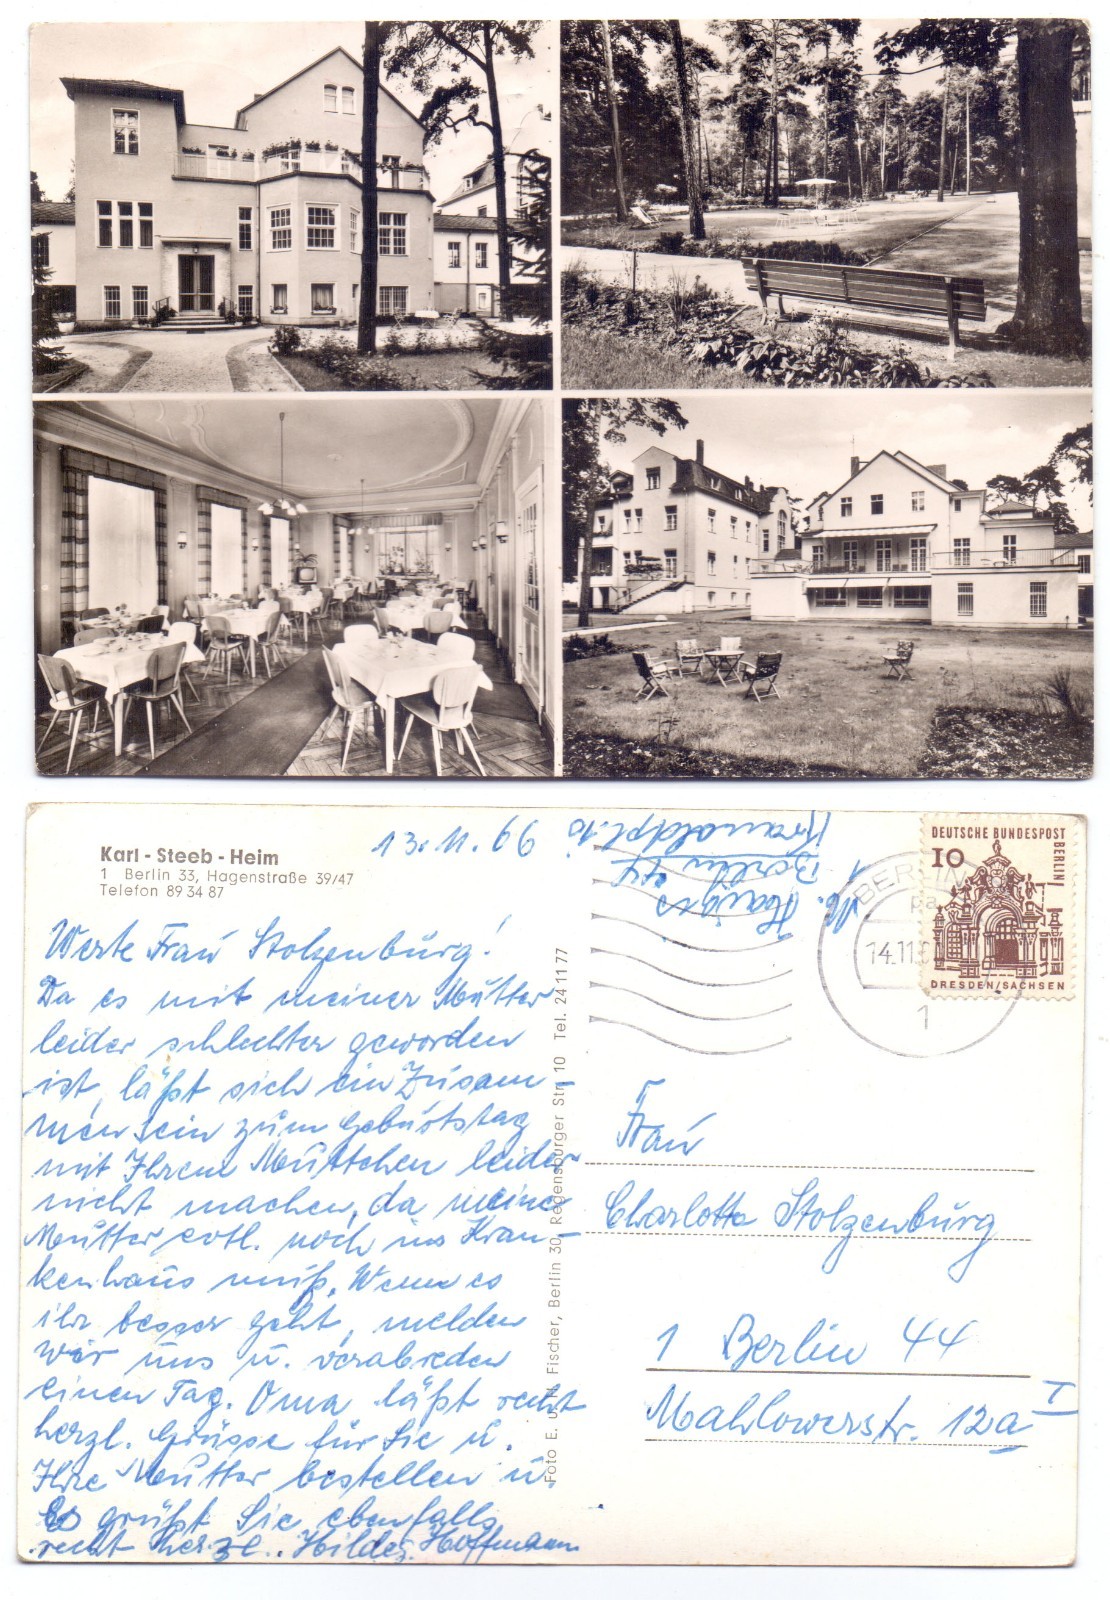 Karl - Steeb - Heim
1 Berlin 33, Hagenstraße 39/47
Telefon 89 34 87
13.11.66
Werte Frau Stolzenburg!
Da es mit meiner Mutter
leider schlechter geworden
ist, läßt sich ein Zusam-
mensein zum Geburtstag
mit Ihrem Muttchen leider
nicht machen, da meine
Mutter evtl. noch ins Kran-
kenhaus muß. Wenn es
ihr besser geht, melden
wir uns u. verabreden
einen Tag. Oma läßt recht
herzl. Grüsse für Sie u.
Ihre Mutter bestellen u.
Es grüßt Sie ebenfalls
recht herzl. Hildeg. Hoffmann
Foto E. u. H. Fischer, Berlin 30, Regensburger Str. 10 Tel. 24 11 77
1 Berlin 44
DEUTSCHE BUNDESPOST
BERLIN
10
DRESDEN/SACHSEN
BERLIN
14.11.
1
Frau
Charlotte Stolzenburg
1 Berlin 44
Mahlowerstr. 12a I